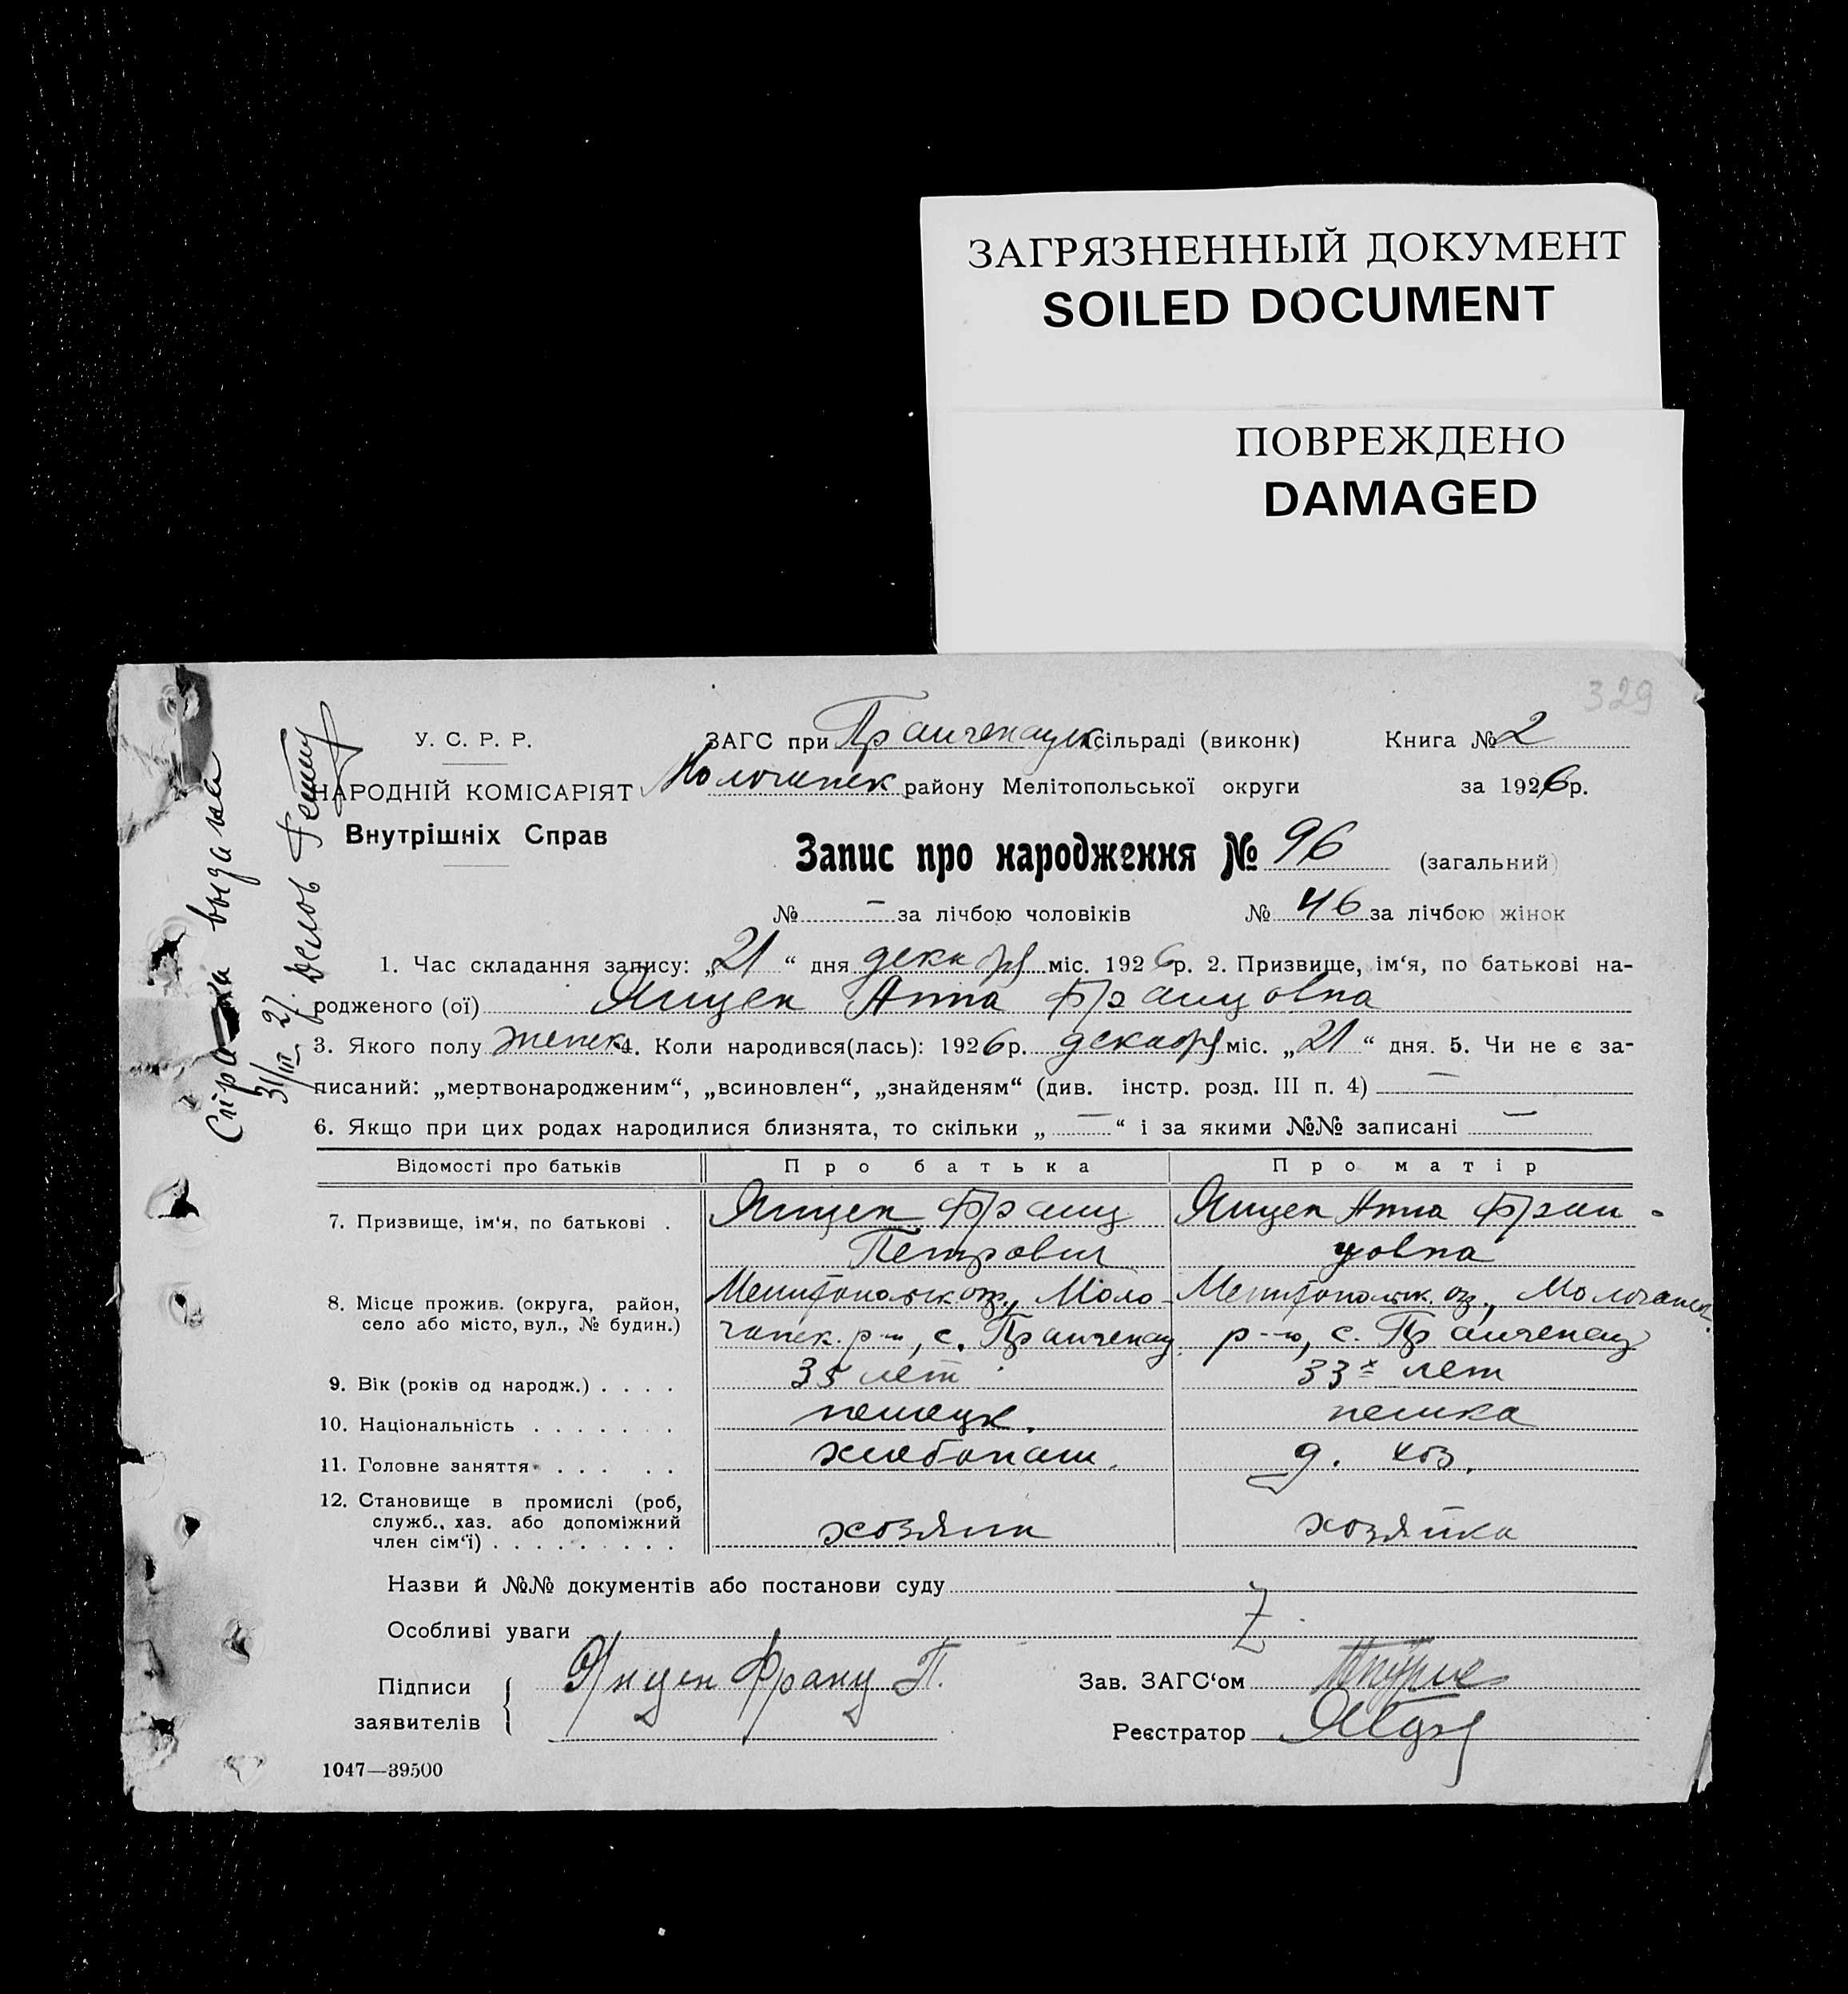 ЗАГРЯЗНЕННЫЙ ДОКУМЕНТ
SOILED DOCUMENT
ПОВРЕЖДЕНО
DAMAGED
329
У. С. Р. Р.
НАРОДНІЙ КОМІСАРІЯТ
Внутрішніх Справ
ЗАГС при Прангенауск сільраді (виконк)
Молочанск району Мелітопольської округи
Книга № 2
за 1926 р.
Запис про народження № 96 (загальний)
№ – за лічбою чоловіків № 46 за лічбою жінок
1. Час складання запису: „21“ дня декабря міс. 1926 р. 2. Призвище, ім‘я, по батькові на-
родженого (ої) Янцен Анна Францовна
3. Якого полу женск 4. Коли народився(лась): 1926 р. декабря міс. „21“ дня. 5. Чи не є за-
писаний: „мертвонародженим“, „всиновлен“, „знайденям“ (див. інстр. розд. III п. 4) –
6. Якщо при цих родах народилися близнята, то скільки „ – “ і за якими №№ записані –
Відомості про батьків Про батька Про матір
7. Призвище, ім‘я, по батькові . Янцен Франц Янцен Анна Фран-
Петрович цовна
8. Місце прожив. (округа, район, Мелитопольск. окр., Моло- Мелитопольск. окр., Молочанск.
село або місто, вул., № будин.) чанск. р-н, с. Прангенау р-н, с. Прангенау
9. Вік (років од народж.) . . . . 35 лет 33х лет
10. Національність . . . . . . . немецк. немка
11. Головне заняття . . . . . хлебопаш. д. хоз.
12. Становище в промислі (роб,
служб., хаз. або допоміжний
член сім‘ї) . . . . . . . . . хозяин хозяйка
Назви й №№ документів або постанови суду
Особливі уваги
Підписи
заявителів
Янцен Франц П.
Зав. ЗАГС‘ом
Реєстратор
1047—39500
Справка выдана
31/III 27.